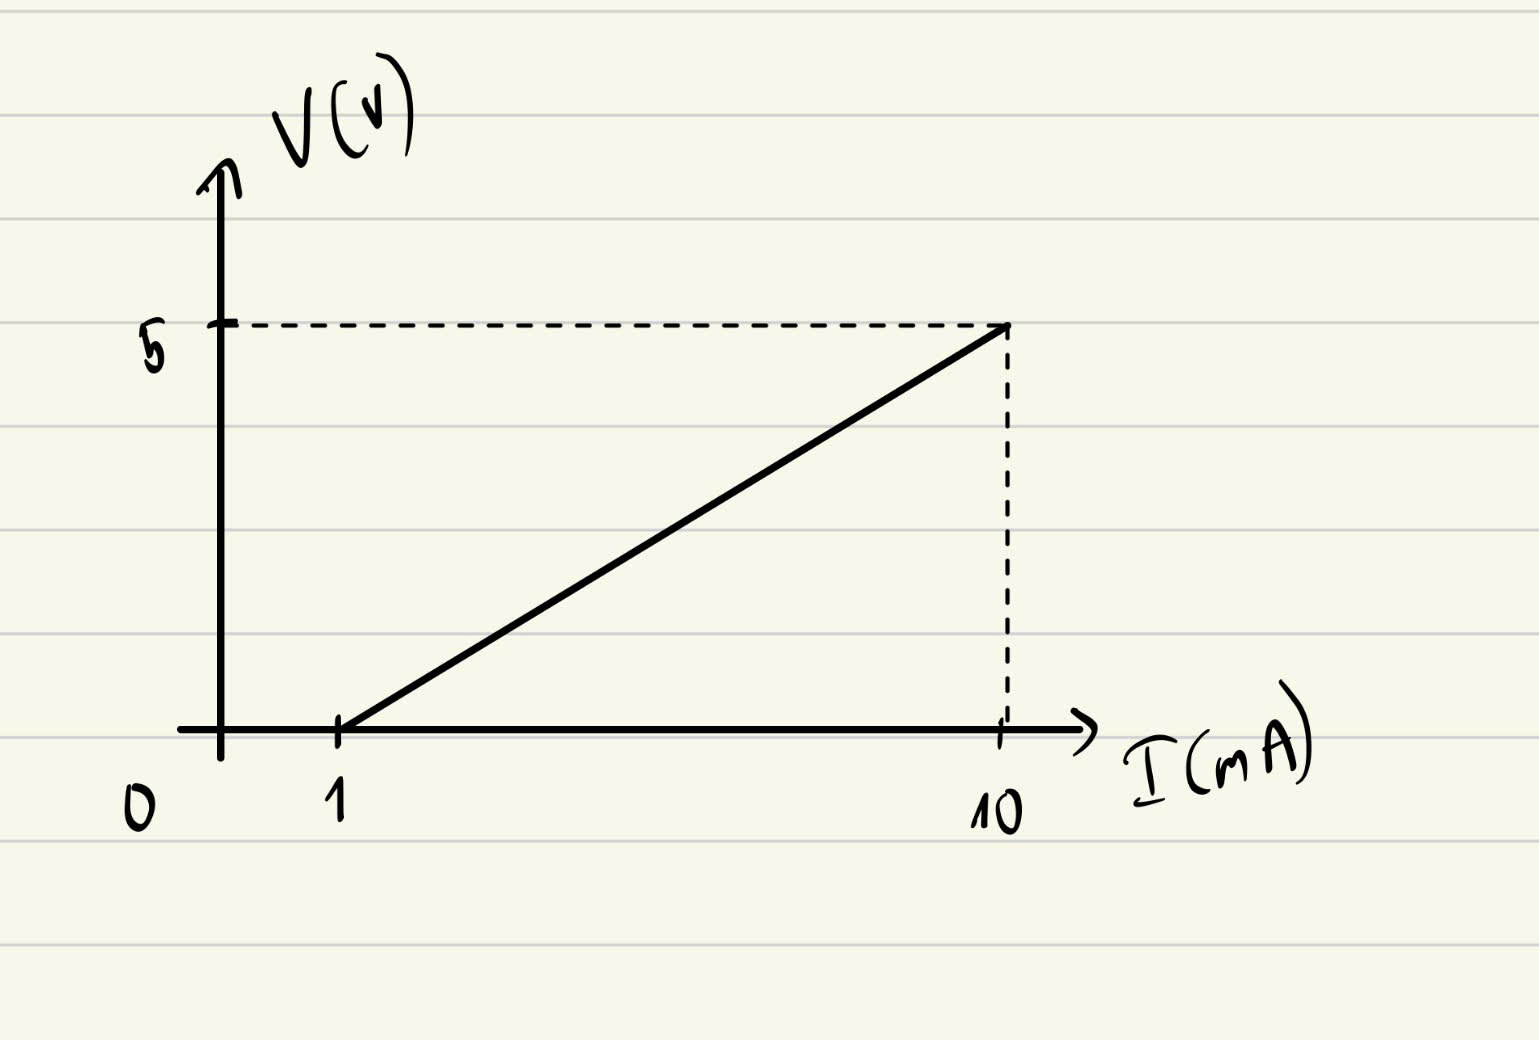 V(V)
5
0
1
10
I(mA)